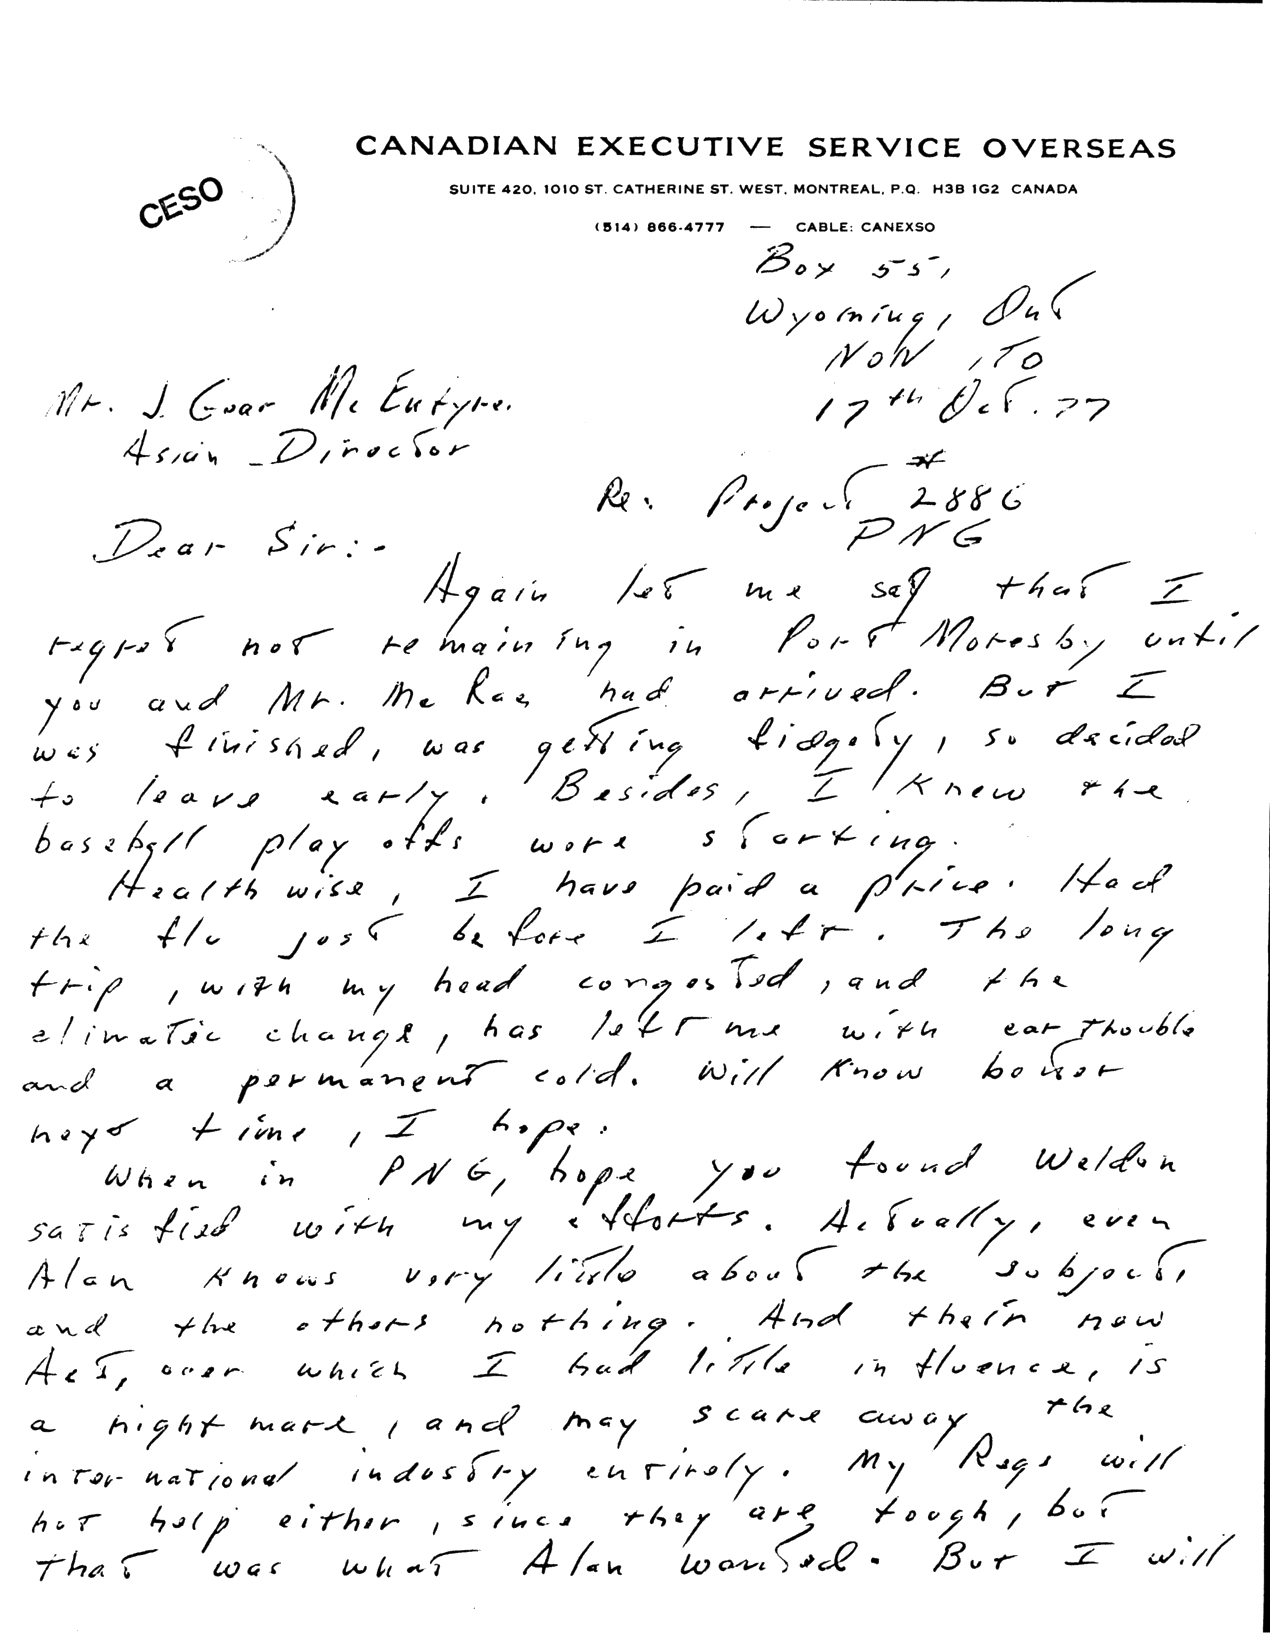 CESO
CANADIAN EXECUTIVE SERVICE OVERSEAS
SUITE 420, 1010 ST. CATHERINE ST. WEST, MONTREAL, P.Q. H3B 1G2 CANADA
(514) 866-4777 — CABLE: CANEXSO
Box 55,
Wyoming, Ont
NON 1T0
17th Oct. 77
Mr. J. Gear McEntyre.
Asian Director
Re: Project # 2886
PNG
Dear Sir:-
Again let me say that I
regret not remaining in Port Moresby until
you and Mr. McRae had arrived. But I
was finished, was getting fidgety, so decided
to leave early. Besides, I knew the
baseball play offs were starting.
Health wise, I have paid a price. Had
the flu just before I left. The long
trip, with my head congested, and the
climatic change, has left me with ear trouble
and a permanent cold. Will know better
next time, I hope.
When in PNG, hope you found Weldon
satisfied with my efforts. Actually, even
Alan knows very little about the subject,
and the others nothing. And their new
Act, over which I had little influence, is
a nightmare, and may scare away the
international industry entirely. My Regs will
not help either, since they are tough, but
that was what Alan wanted. But I will